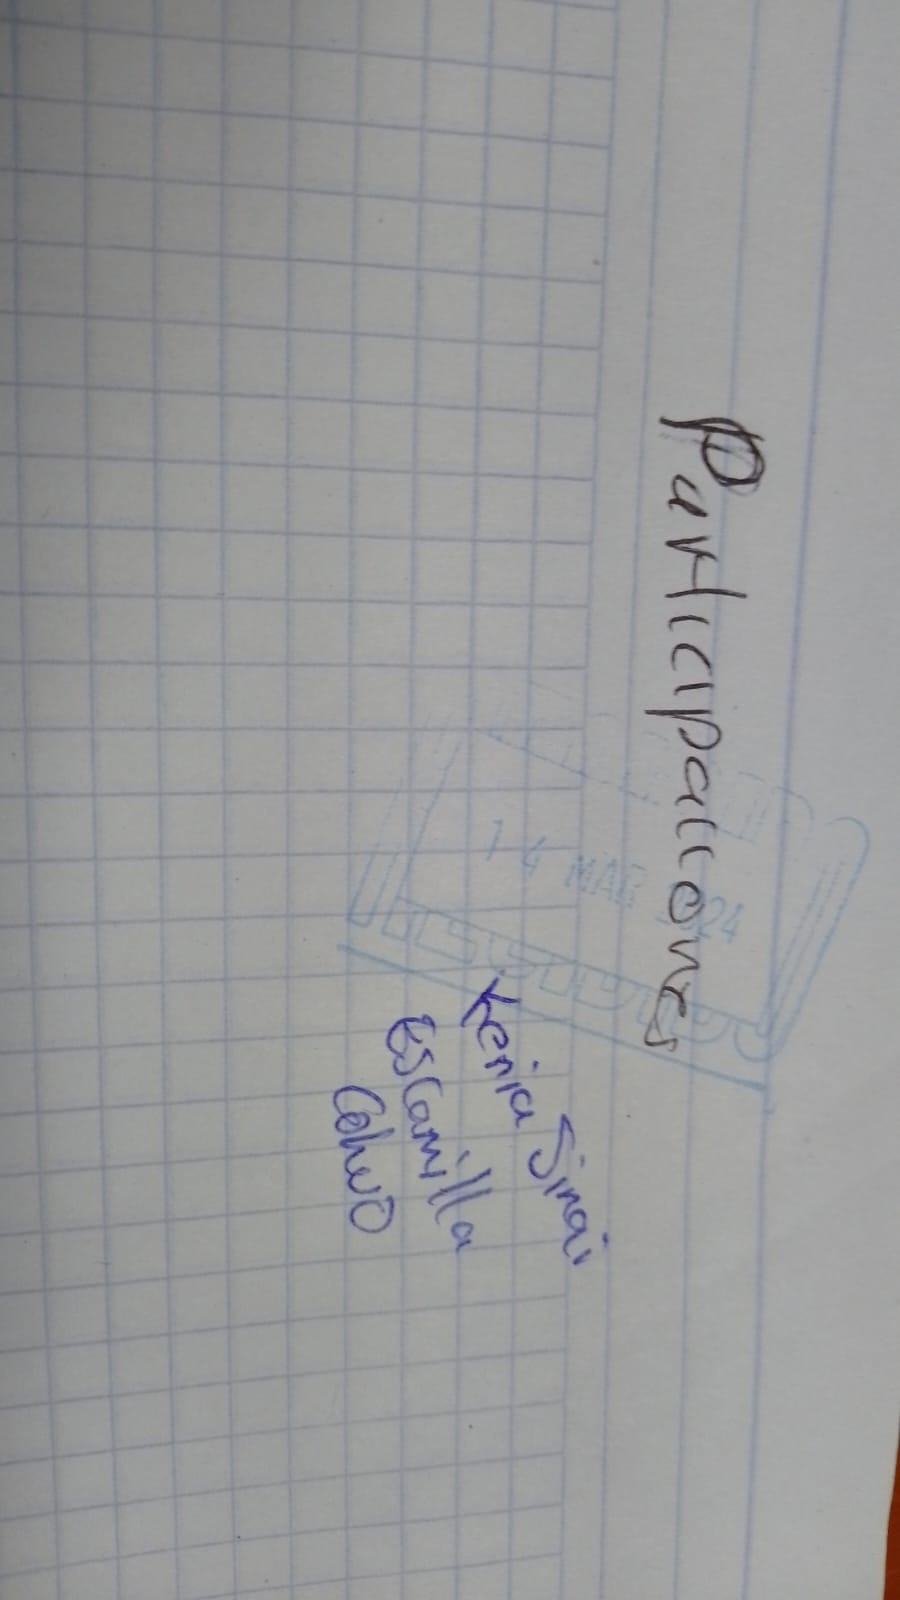 Participaciones
14 MAR 2024
Kenia Sinai
Escamilla